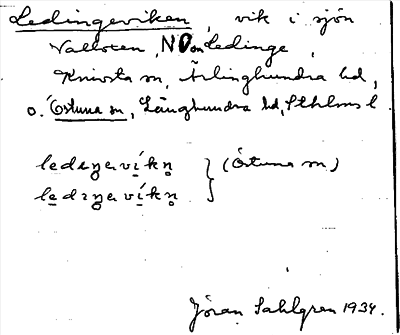 Ledingeviken, vik i sjön
Valloxen, NO om Ledinge,
Knivsta sn, Ärlinghundra hd,
o. Östuna sn, Långhundra hd, Sthlms l
ledeŋavíkn̥ } (Östuna sn)
ledɪŋavíkn̥
Jöran Sahlgren 1934.